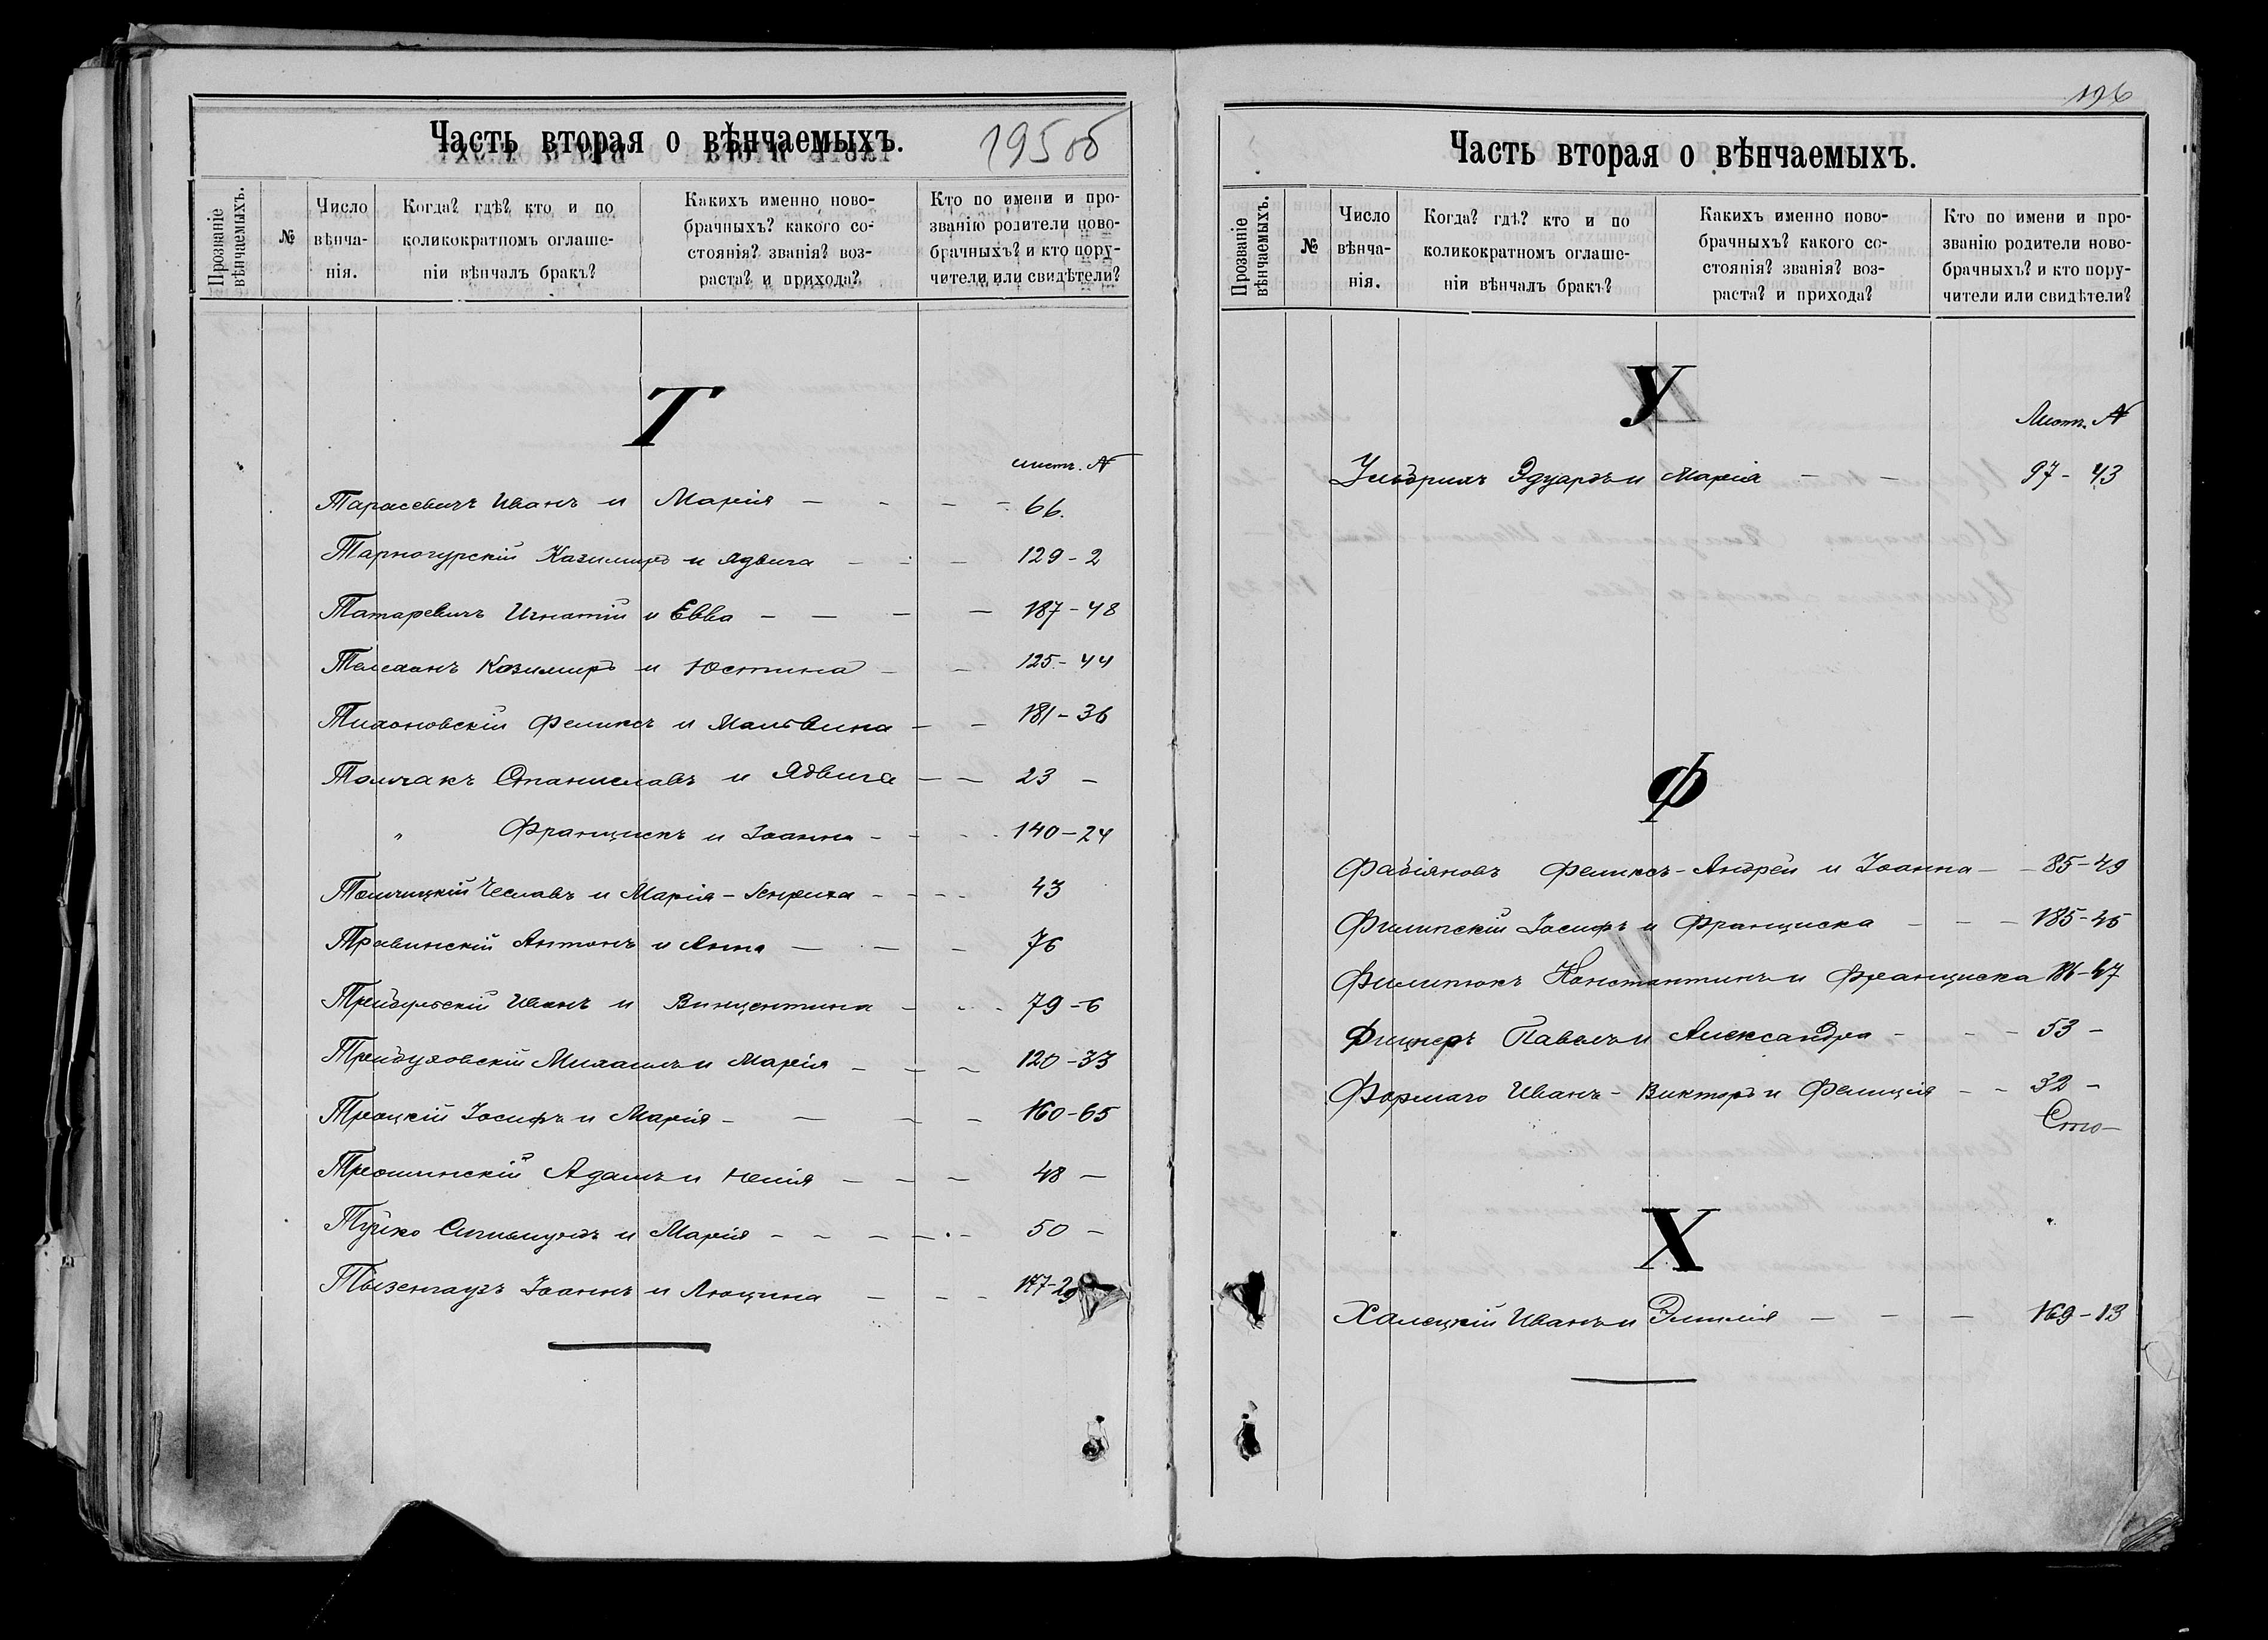 Часть вторая о вѣнчаемыхъ.
195 об
Прозваніе вѣнчаемыхъ.
№
Число вѣнча-
нія.
Когда? гдѣ? кто и по
коликократномъ оглаше-
ніи вѣнчалъ бракъ?
Какихъ именно ново-
брачныхъ? какого со-
стоянія? званія? воз-
раста? и прихода?
Кто по имени и про-
званію родители ново-
брачныхъ? и кто пору-
чители или свидѣтели?
Т
листъ. №
Тарасевичъ Иванъ и Марія — - — - 66.
Тарногурскій Казимиръ и Ядвига — - — 129 - 2
Татаревичъ Игнатій и Евва — — — — 187 - 48
Козимиръ и Юстина — — 125 - 44
Тихоновскій Феликсъ и Мальвина — — 181 - 36
Толчакъ Станиславъ и Ядвига — — 23 —
" Францискъ и Іоанна - - - - 140 - 24
Чеславъ и Марія - Генрика - - - - 43
Травинскій Антонъ и Анна — — — 76
Иванъ и Винцентина — - - 79 - 6
Михаилъ и Марія — — — 120 - 33
Троцкій Іосифъ и Марія — — — — 160 - 65
Адамъ и Юлія — — — 48 —
Туйко Сигизмундъ и Марія - - — — - 50 —
Тызенгаузъ Іоаннъ и Люцина — - - 177 - 29
196
Часть вторая о вѣнчаемыхъ.
Прозваніе вѣнчаемыхъ.
№
Число вѣнча-
нія.
Когда? гдѣ? кто и по
коликократномъ оглаше-
ніи вѣнчалъ бракъ?
Какихъ именно ново-
брачныхъ? какого со-
стоянія? званія? воз-
раста? и прихода?
Кто по имени и про-
званію родители ново-
брачныхъ? и кто пору-
чители или свидѣтели?
У
Листъ. №
Ульбрихъ Эдуардъ и Марія — — 97 - 43
Ф
Фабіяновъ Феликсъ - Андрей и Іоанна — — 85 - 49
Филипскій Іосифъ и Франциска — — — 185 - 45
Филипюкъ Константинъ и Франциска 186 - 47
Фицнеръ Павелъ и Александра - - - 53 —
Иванъ - Викторъ и Фелиція — — 32 —
Х
Халецкій Иванъ и Эмилія — — — 169 - 13